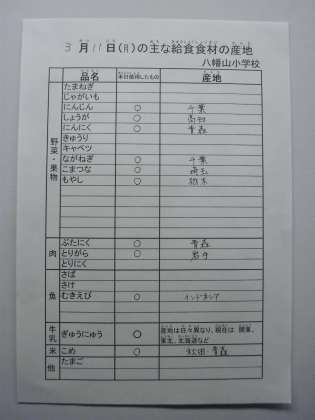 3月11日(月)の主な給食食材の産地
八幡山小学校
品名 本日使用したもの 産地
野菜・果物
たまねぎ
じゃがいも
にんじん ○ 千葉
しょうが ○ 高知
にんにく ○ 青森
きゅうり
キャベツ
ながねぎ ○ 千葉
こまつな ○ 埼玉
もやし ○ 栃木
肉
ぶたにく ○ 青森
とりがら ○ 岩手
とりにく
魚
さば
さけ
むきえび ○ インドネシア
牛乳 ぎゅうにゅう ○ 産地は日々異なり、現在は、関東、
東北、北海道など
米 こめ ○ 秋田・青森
他 たまご